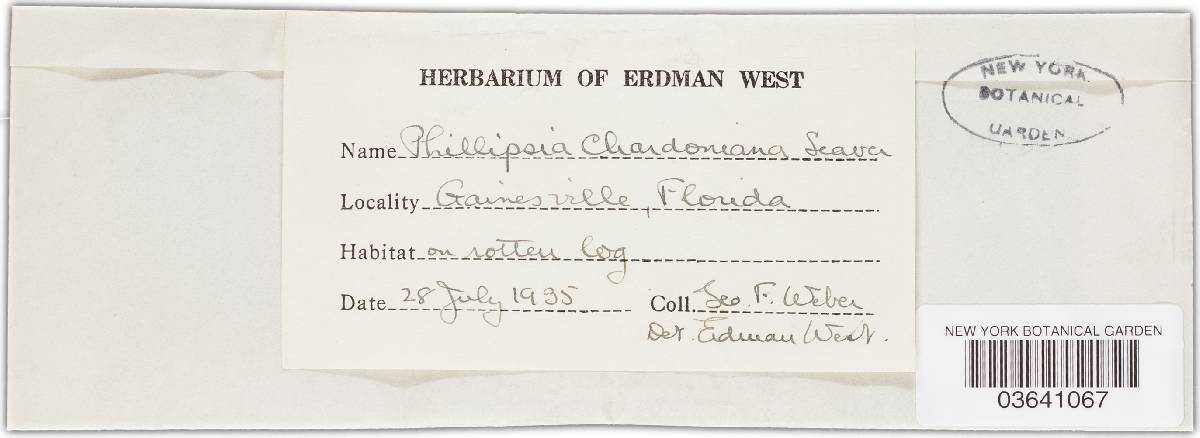 HERBARIUM OF ERDMAN WEST
Name Phillipsia Chardoniana Seaver
Locality Gainesville, Florida
Habitat on rotten log
Date 28 July 1935 Coll. Geo. F. Weber
Det. Erdman West.
NEW YORK
BOTANICAL
GARDEN
NEW YORK BOTANICAL GARDEN
03641067